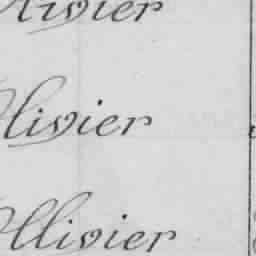 Olivier
Olivier
Ollivier